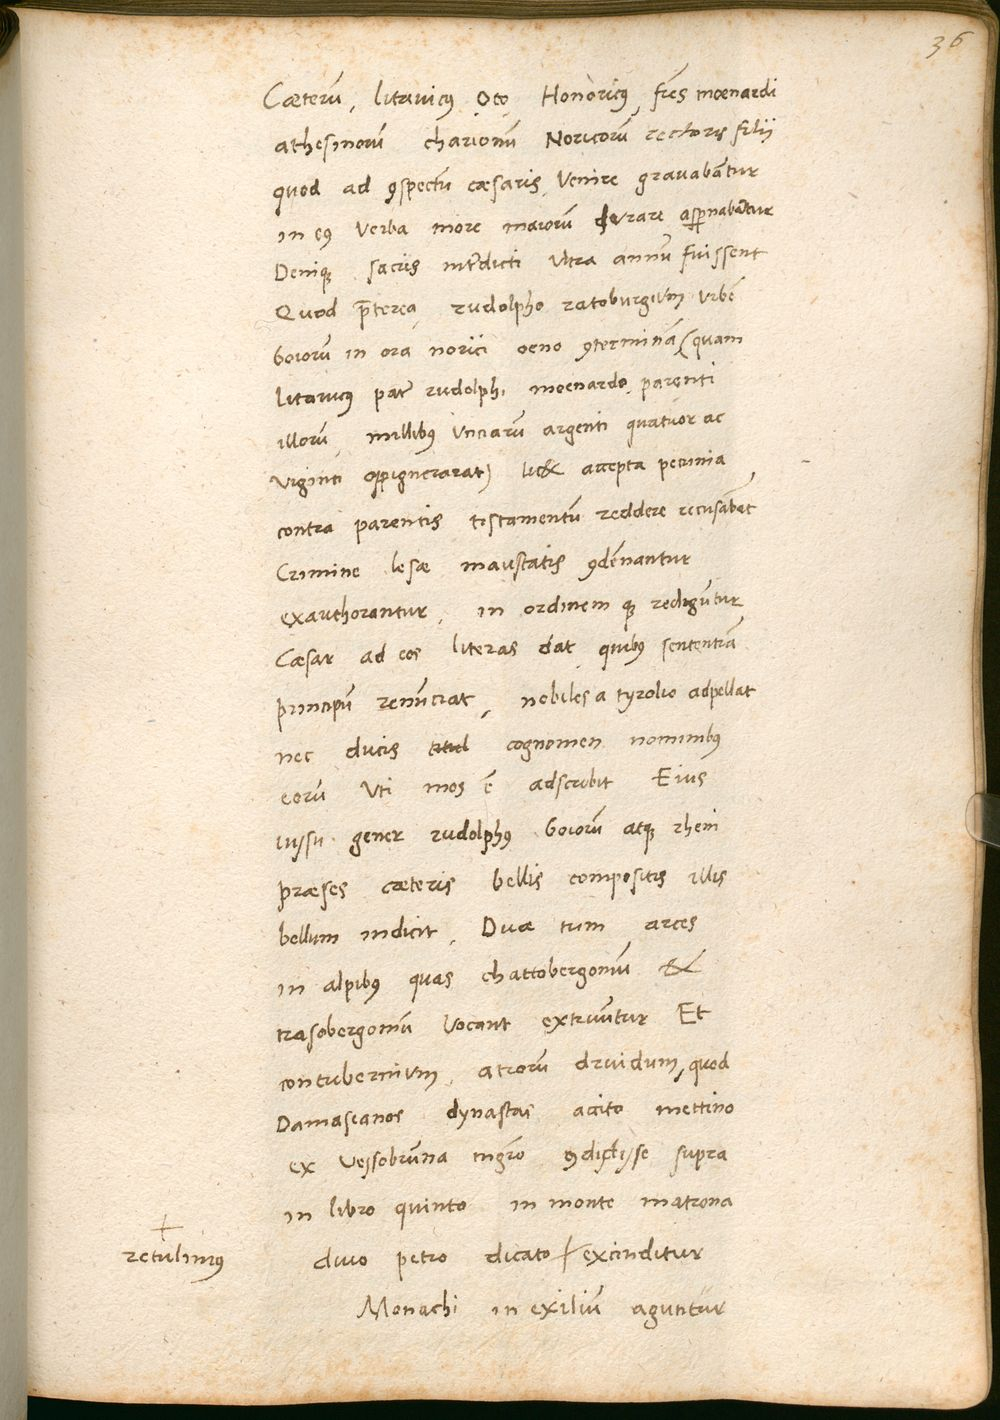 36
Cæterū, litavicꝰ Oto, Honoricꝰ, fr̄es moenardi
athesinorū charionū Noricorū rectoris filii
quod ad ꝯspectū cæsaris Venire gravabātur
in eiꝰ Verba more maiorū iurare aspnabātur
Deniqꝫ sacris int̄dicti ultra annū fuissent
Quod p̄terea, rudolpho ratoburgium urbē
boiorū in ora norici oeno ꝯterminā (quam
litavicꝰ pat̄ rudolphi moenardo parenti
illorū millibꝰ Unciarū argenti quatuor ac
viginti oppignerarat) lic& accepta pecunia
contra parentis testamentū reddere recusābat
Crimine lesæ maiestatis ꝯdēnantur
exauthorantur, in ordinem qꝫ redigūtur
Cæsar ad eos literas dat quibꝰ sententiā
principū renūciat, nobiles a tyrolio adpellat
nec ducis titul cognomen nominibꝰ
eorū Uti mos ē adscribit Eius
iussu gener rudolphꝰ boiorū atqꝫ rheni
præses cæteris bellis compositis illis
bellum indicit, Duæ tum arces
in alpibꝰ quas chattobergomū &
trasobergomū Vocant extruūtur Et
contubernium, atrorū druidum, quod
Damasianos dynastas accito mettino
ex Vessobrūna nigro ꝯdidisse supra
in libro quinto in monte matrona
retulimꝰ
divo petro dicato excinditur
Monachi in exiliū aguntur